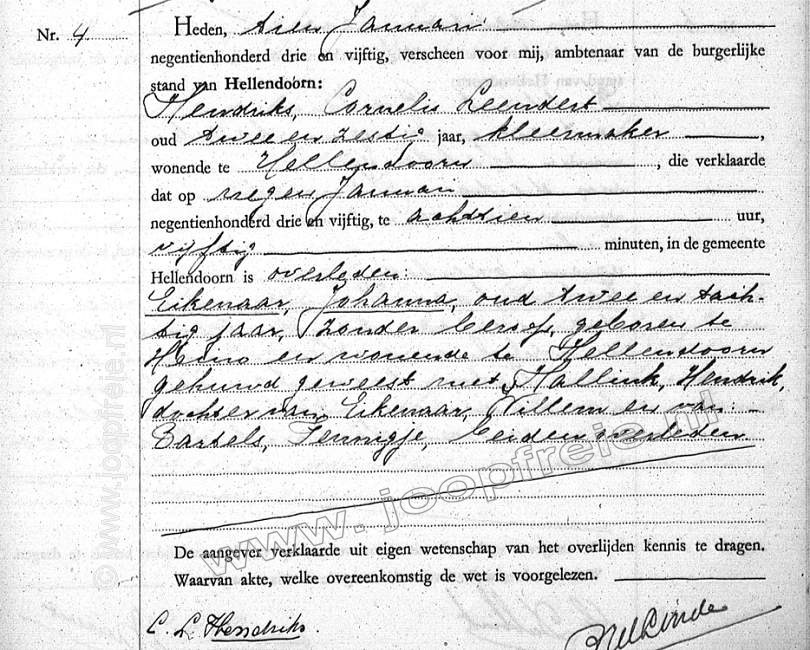 Nr. 4
Heden, tien Januari
negentienhonderd drie en vijftig, verscheen voor mij, ambtenaar van de burgerlijke
stand van Hellendoorn:
Hendriks, Cornelis Leendert
oud twee en zestig jaar, kleermaker ,
wonende te Hellendoorn , die verklaarde
dat op negen Januari
negentienhonderd drie en vijftig, te achttien uur,
vijftig minuten, in de gemeente
Hellendoorn is overleden:
Eikenaar, Johanna, oud twee en tach-
tig jaar, zonder beroep, geboren te
Heino en wonende te Hellendoorn
gehuwd geweest met Hallink, Hendrik,
dochter van Eikenaar, Willem en van
Bartels, Jennigje, beiden overleden.
www.joopfreie.nl
De aangever verklaarde uit eigen wetenschap van het overlijden kennis te dragen.
Waarvan akte, welke overeenkomstig de wet is voorgelezen.
C. L. Hendriks.
© www.joopfreie.nl